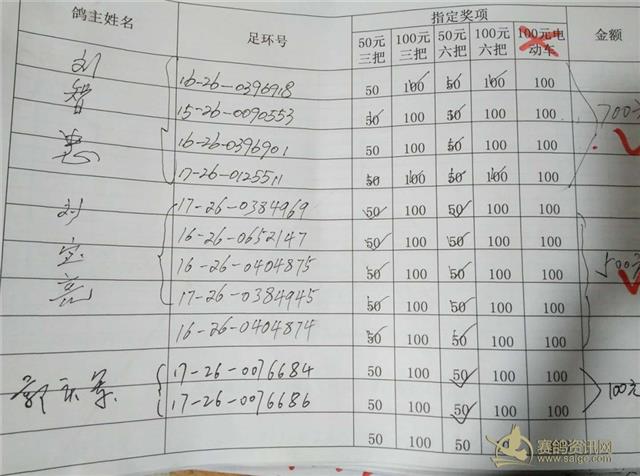 鸽主姓名 足环号 指定奖项 金额
50元三把 100元三把 50元六把 100元六把 100元电动车
刘智惠
16-26-0396918 50 100 50 100 100
15-26-0090553 50 100 50 100 100
16-26-0396901 50 100 50 100 100
17-26-0125511 50 100 50 100 100
700元
刘宝亮
17-26-0384969 50 100 50 100 100
16-26-0652147 50 100 50 100 100
16-26-0404875 50 100 50 100 100
17-26-0384945 50 100 50 100 100
16-26-0404874 50 100 50 100 100
500元
17-26-0076684 50 100 50 100 100
17-26-0076686 50 100 50 100 100
100元
50 100 50 100 100
赛鸽资讯网
www.saige.com